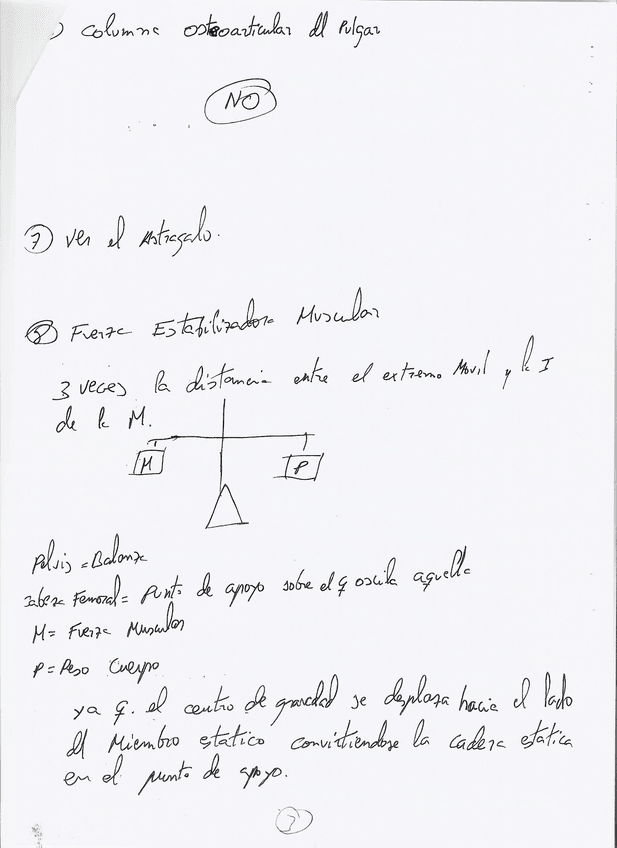 ) Columna osteoarticular dl Pulgar
NO
7 Ver el Astragalo.
8 Fuerza Estabilizadora Muscular
3 veces la distancia entre el extremo Movil y la I
de la M.
M P
Pelvis = Balanza
Cabeza Femoral = Punto de apoyo sobre el q oscila aquella
M = Fuerza Muscular
P = Peso Cuerpo
ya q. el centro de gravedad se desplaza hacia el lado
dl Miembro estatico convirtiendose la cadera estatica
en el punto de apoyo.
3